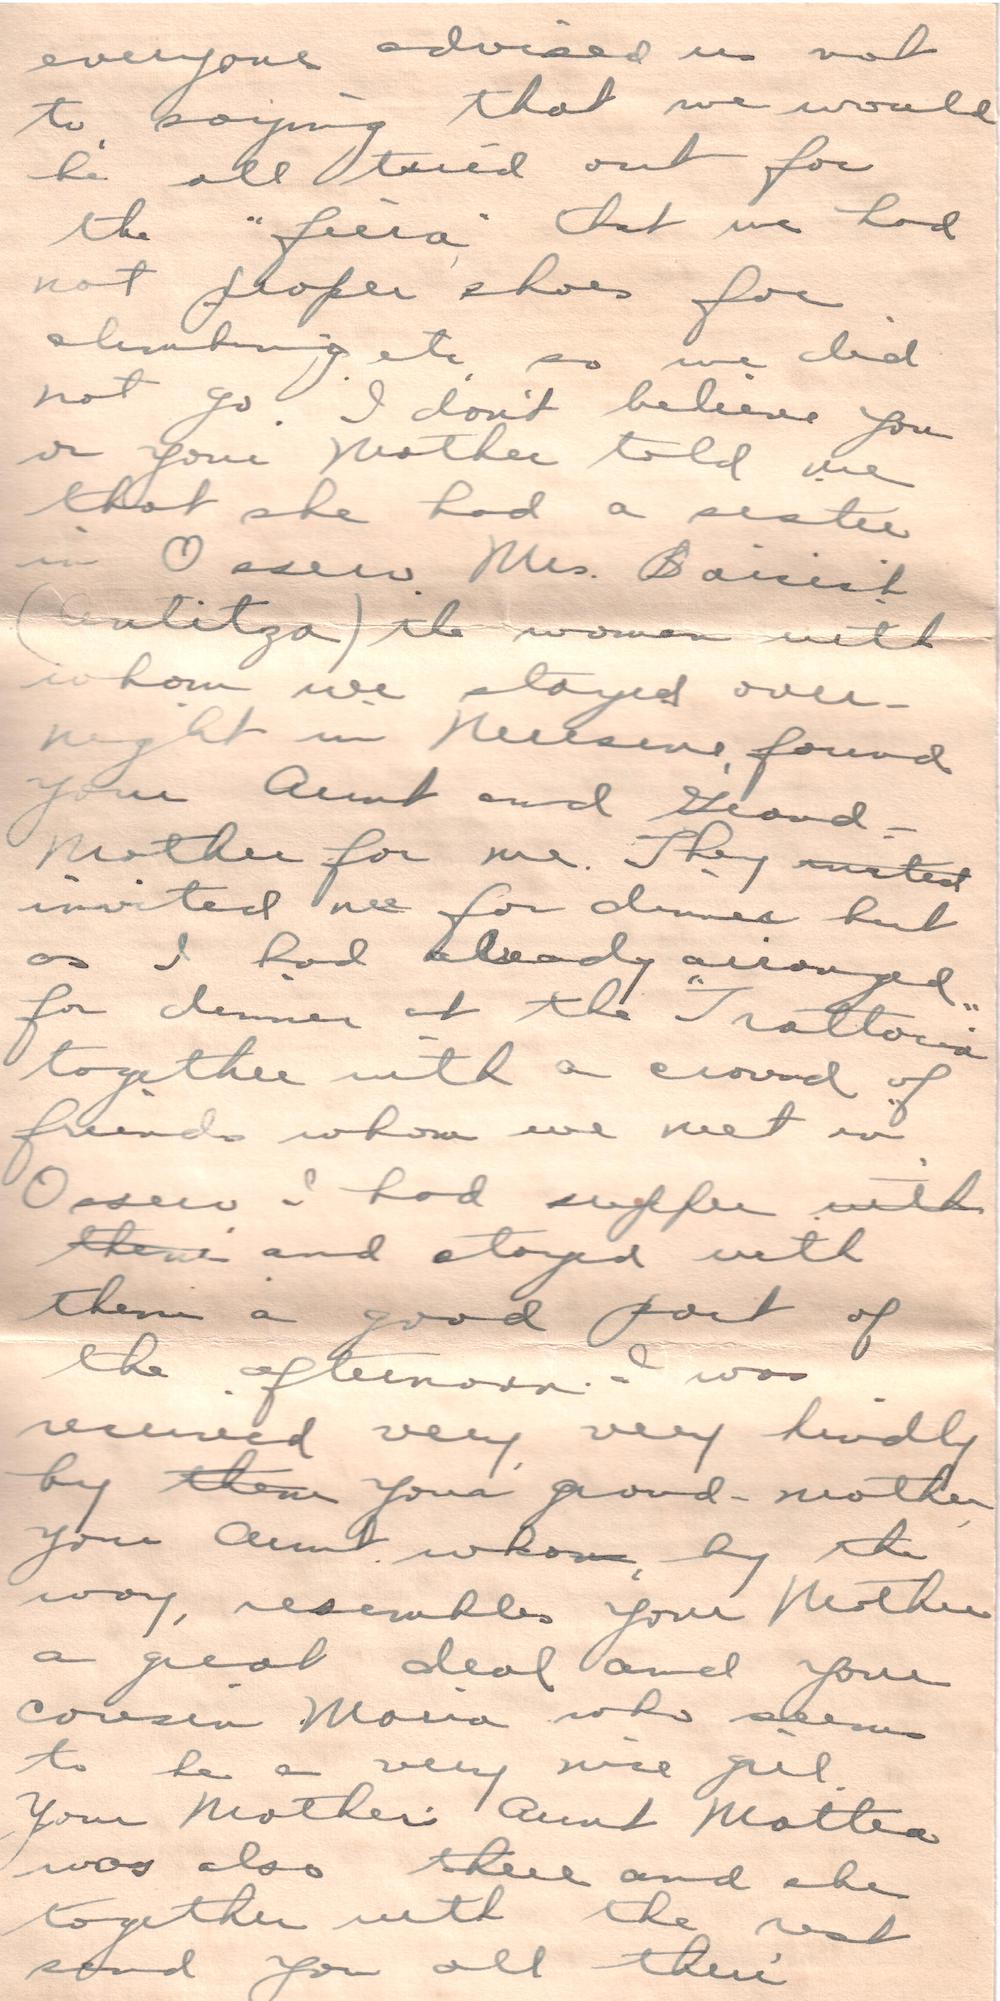 everyone advised us not
to, saying that we would
be all tired out for
the "fiera" that we had
not proper shoes for
climbing etc, so we did
not go. I don't believe you
or your Mother told me
that she had a sister
in Ossero. Mrs.
(Antitza) the woman with
whom we stayed over-
night in Neresine, found
your Aunt and Grand-
Mother for me. They invited
invited me for dinner but
as I had already arranged
for dinner at the "Trattoria"
together with a crowd of
friends whom we met in
Ossero I had supper with
them and stayed with
them a good part of
the afternoon. I was
received very, very kindly
by them your grand-mother,
your Aunt whom, by the
way, resembles your Mother
a great deal and your
cousin Maria who seems
to be a very nice girl.
Your Mother's Aunt Mattea
was also there and she
together with the rest
send you all their